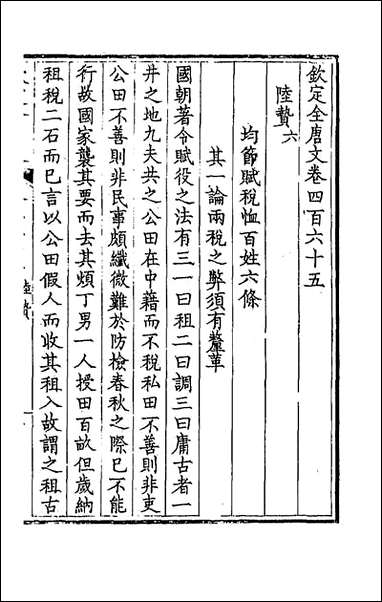 欽定全唐文卷四百六十五
陸贄六
均節賦稅恤百姓六條
其一論兩稅之弊須有釐革
國朝著令賦役之法有三一曰租二曰調三曰庸古者一
井之地九夫共之公田在中藉而不稅私田不善則非吏
公田不善則非民事頗纖微難於防檢春秋之際已不能
行故國家襲其要而去其煩丁男一人授田百畝但歲納
租稅二石而已言以公田假人而收其租入故謂之租古